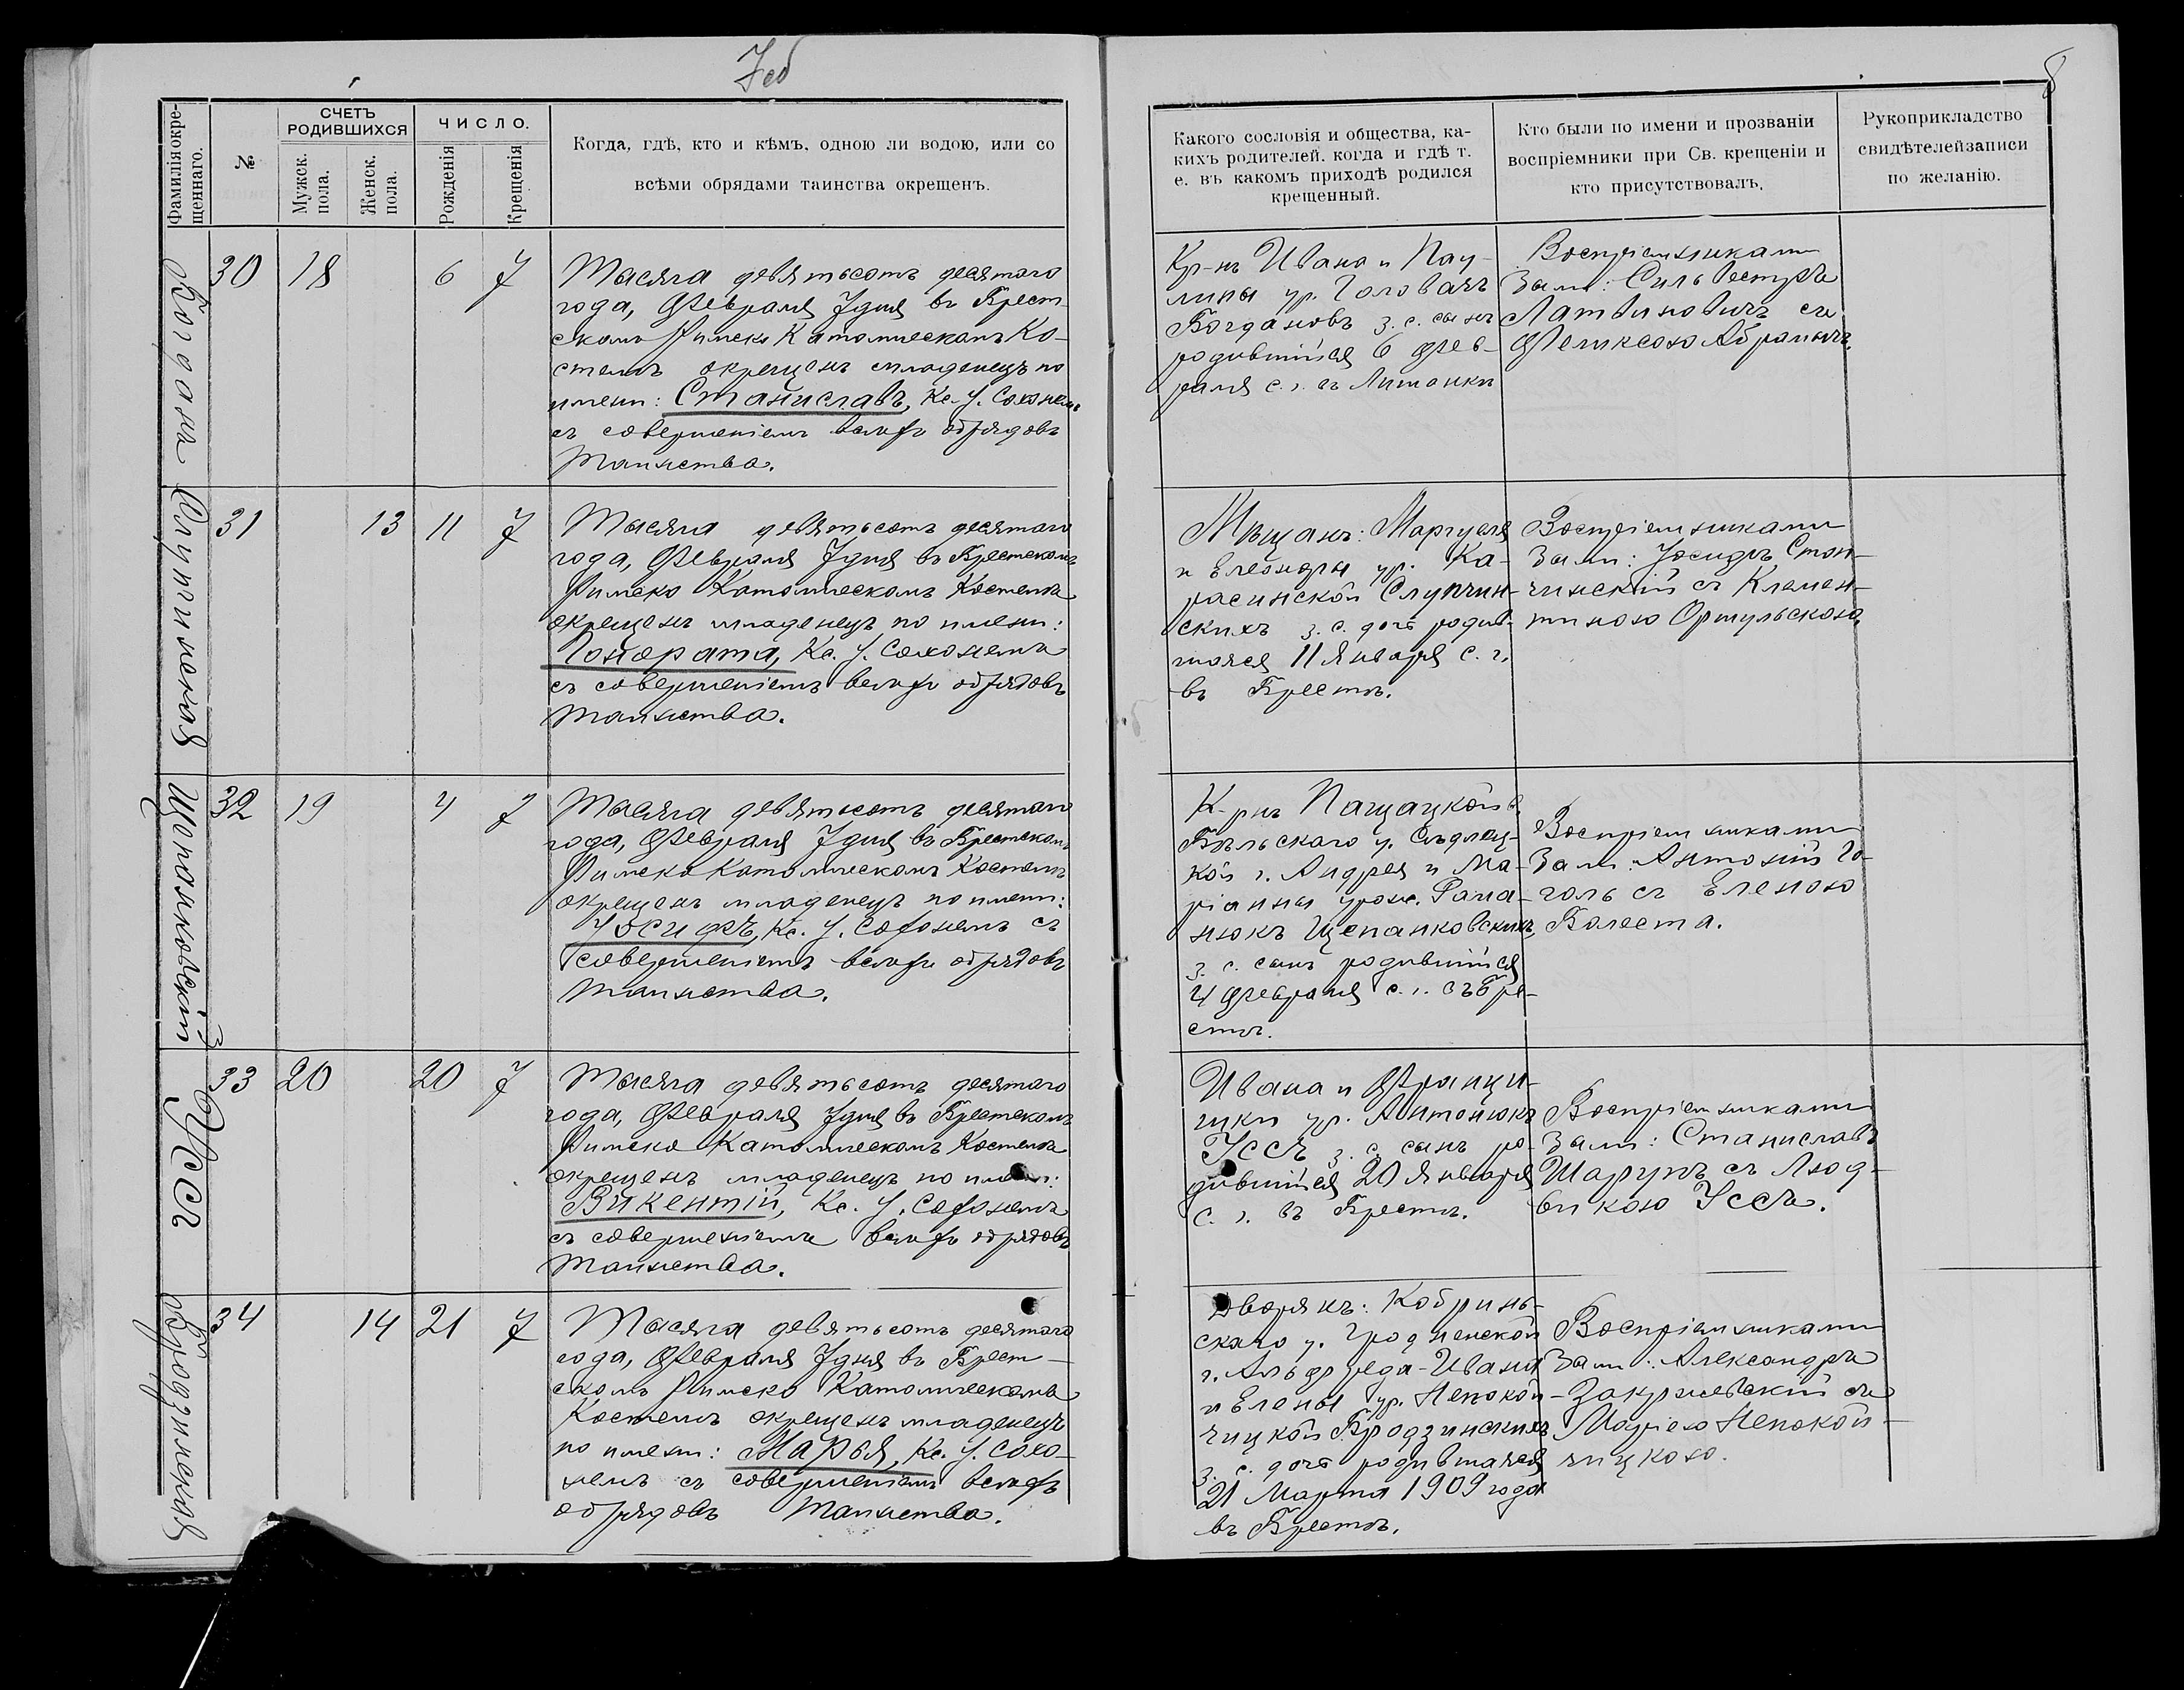 Феб
8
Фамилія окре-
щеннаго.
№
СЧЕТЪ
РОДИВШИХСЯ
Мужск.
пола.
Женск.
пола.
ЧИСЛО.
Рожденія
Крещенія
Когда, гдѣ, кто и кѣмъ, одною ли водою, или со
всѣми обрядами таинства окрещенъ.
Какого сословія и общества, ка-
кихъ родителей, когда и гдѣ т.
е. въ какомъ приходѣ родился
крещенный.
Кто были по имени и прозванію
воспріемники при Св. крещеніи и
кто присутствовалъ.
Рукоприкладство
свидѣтелей записи
по желанію.
Богданъ
30 18 6 7
Тысяча девятьсотъ десятаго
года, Февраля 7 дня въ Брест-
скомъ Римско Католическомъ Ко-
стелѣ окрещенъ младенецъ по
имени: Станиславъ, Кс. У.
съ совершеніемъ всѣхъ обрядовъ
таинства.
Кр-нъ Ивана и Пау-
лины ур. Головачъ
Богдановъ з. с. сынъ
родившійся 6 Фев-
раля с. г. въ
Воспріемниками
были: Сильвестръ
Латвиновичъ съ
Феликсою
Слупчинская
31 13 11 7
Тысяча девятьсотъ десятаго
года, Февраля 7 дня въ Брестскомъ
Римско Католическомъ Костелѣ
окрещенъ младенецъ по имени:
Гонората, Кс. У.
съ совершеніемъ всѣхъ обрядовъ
таинства.
Мѣщанъ:
и Елеоноры ур. Ка-
расинской Слупчин-
скихъ з. с. дочь родив-
шаяся 11 Января с. г.
въ Брестѣ.
Воспріемниками
были: Іосифъ Стон-
чинскій съ Клемен-
тиною Ортульскою
Щепанковскій
32 19 4 7
Тысяча девятьсотъ десятаго
года, Февраля 7 дня въ Брестскомъ
Римско Католическомъ Костелѣ
окрещенъ младенецъ по имени:
Іосифъ, Кс. У. съ
совершеніемъ всѣхъ обрядовъ
таинства.
К-ръ в.
Бѣльскаго у. Сѣдлец-
кой г. Андрея и Ма-
ріанны урож. Рома-
нюкъ Щепанковскихъ,
з. с. сынъ родившійся
4 Февраля с. г. въ Бре-
стѣ.
Воспріемниками
были: Антоній Го-
голь съ Еленою
Болеста.
Уссъ
33 20 20 7
Тысяча девятьсотъ десятаго
года, Февраля 7 дня въ Брестскомъ
Римско Католическомъ Костелѣ
окрещенъ младенецъ по имени:
Викентій, Кс. У.
съ совершеніемъ всѣхъ обрядовъ
таинства.
Ивана и Францы-
шки ур. Антонюкъ
Уссъ з. с. сынъ ро-
дившійся 20 Января
с. г. въ Брестѣ.
Воспріемниками
были: Станиславъ
Шарупъ съ Люд-
викою Уссъ.
Бродзинская
34 14 21 7
Тысяча девятьсотъ десятаго
года, Февраля 7 дня въ Брест-
скомъ Римско Католическомъ
Костелѣ окрещенъ младенецъ
по имени: Марья, Кс. У.
съ совершеніемъ всѣхъ
обрядовъ таинства.
Дворянъ: Кобрин-
скаго у. Гродненской
г. Альфреда-Ивана
и Елены ур. Непокой-
чицкой Бродзинскихъ
з. с. дочь родившаяся
21 Марта 1909 года
въ Брестѣ.
Воспріемниками
были: Александръ
Закржевскій съ
Маріею Непокой-
чицкою.